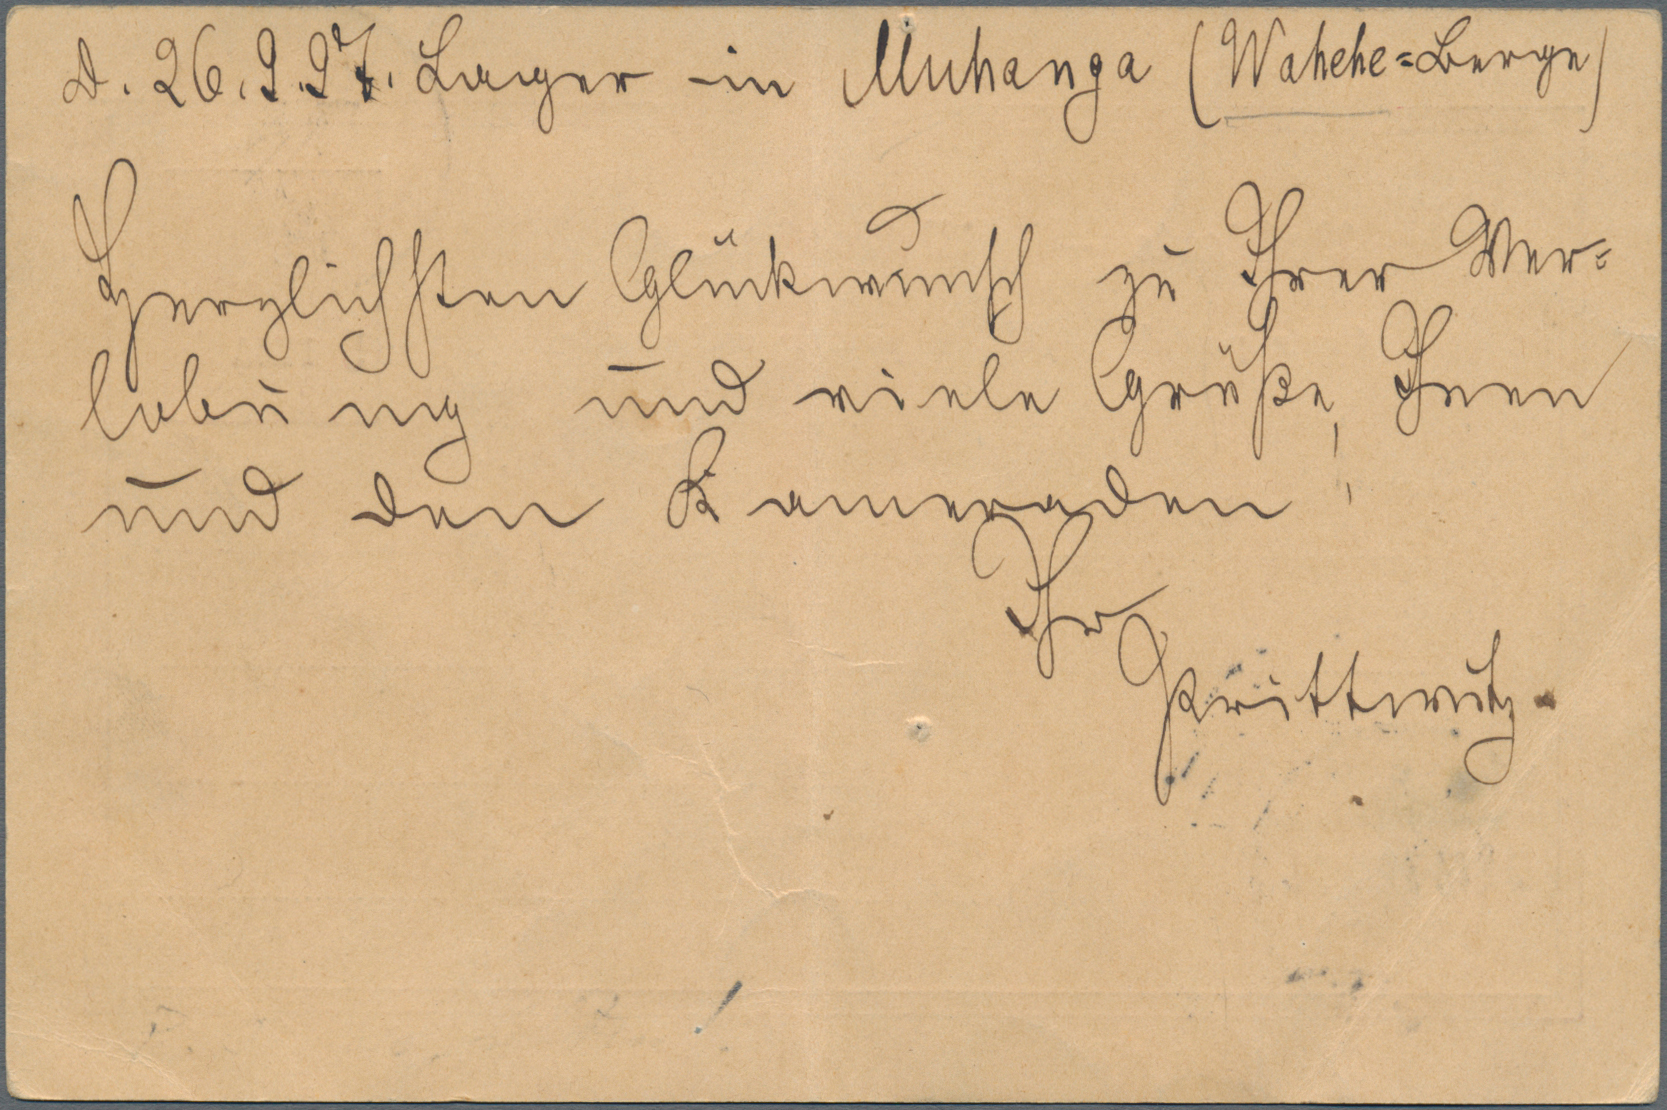 d. 26.9.97. Lager in Muhanga (Wahehe=Berge)
Herzlichsten Glückwunsch zu Ihrer Ver=
lobung und viele Grüße, Ihnen
und den Kameraden!
Ihr
Prittwitz.